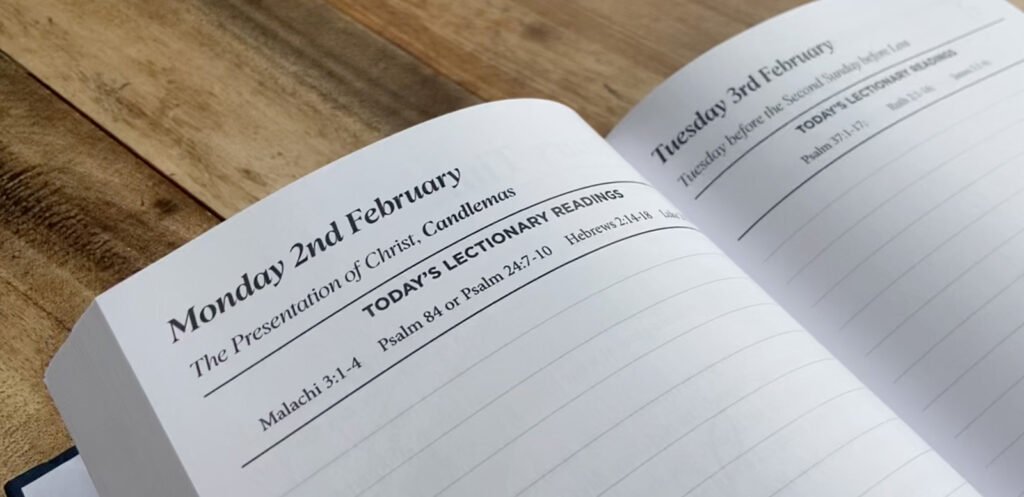 Monday 2nd February
The Presentation of Christ, Candlemas
TODAY'S LECTIONARY READINGS
Malachi 3:1-4 Psalm 84 or Psalm 24:7-10 Hebrews 2:14-18
Tuesday 3rd February
Tuesday before the Second Sunday before Lent
TODAY'S LECTIONARY READINGS
Psalm 37:1-17;